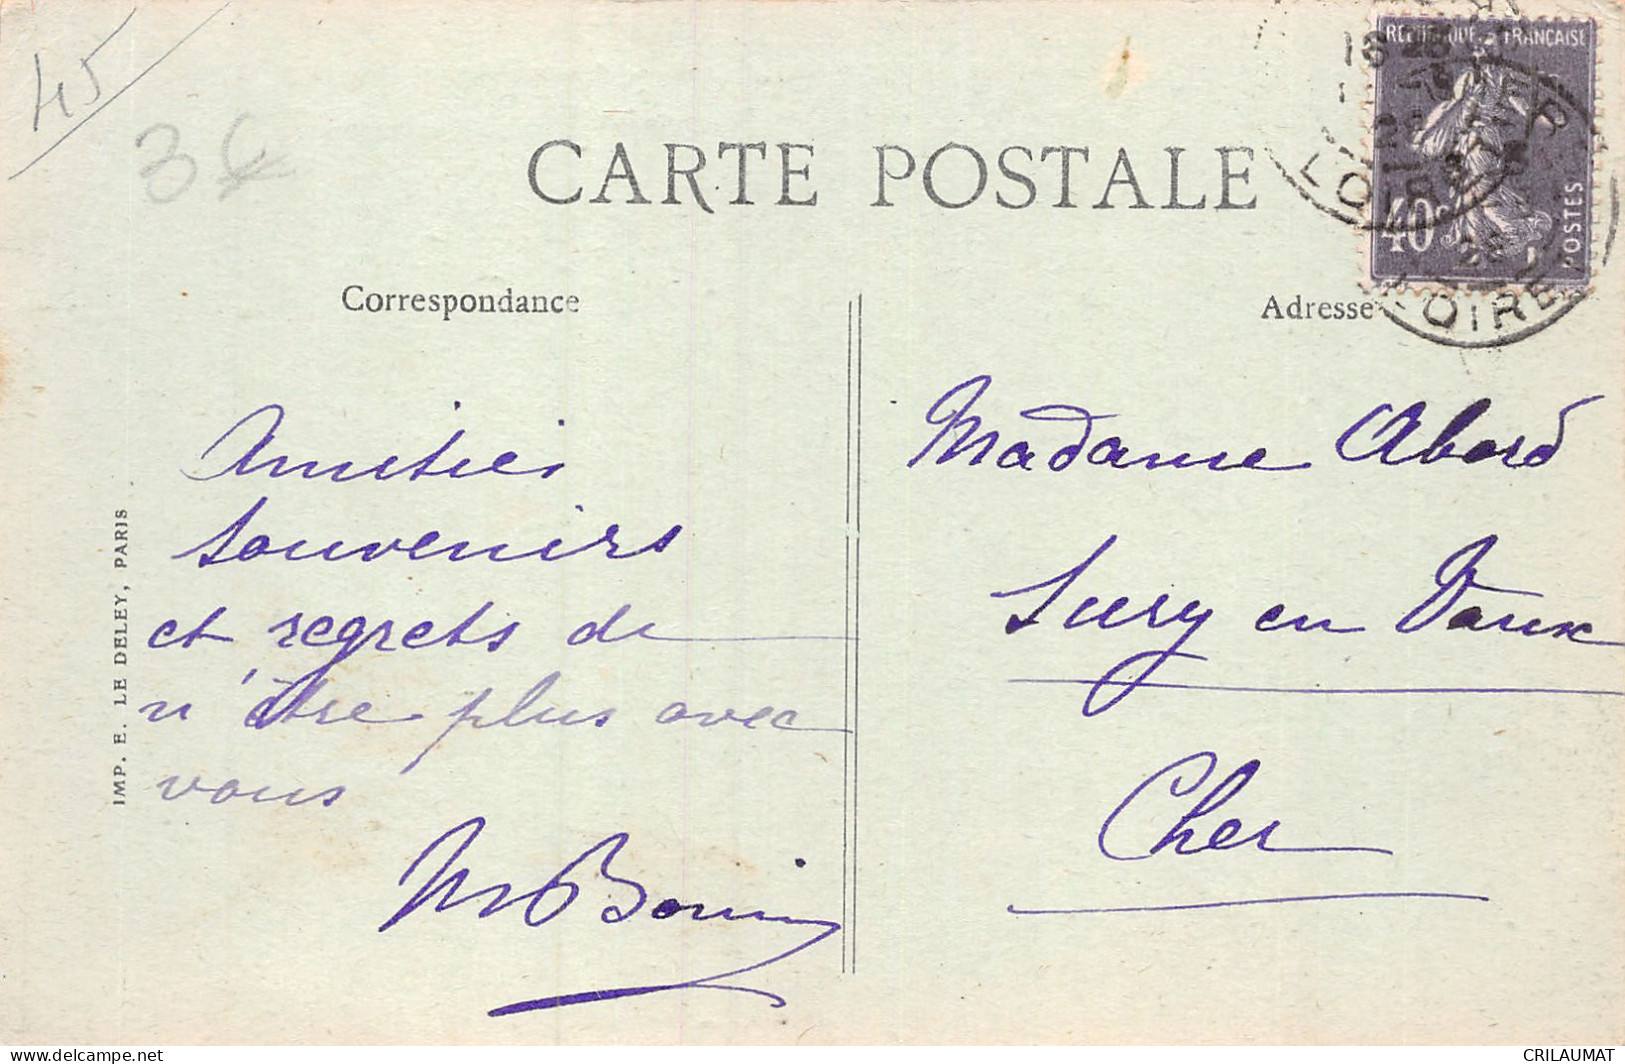 45
3€
CARTE POSTALE
RÉPUBLIQUE FRANÇAISE
40c
POSTES
LOIRET
LOIRET
Correspondance
Adresse
Amitiés
souvenirs
et regrets de
n'être plus avec
vous
Madame Abord
Sury en Vaux
Cher
IMP. E. LE DELEY, PARIS
www.delcampe.net
CRILAUMAT